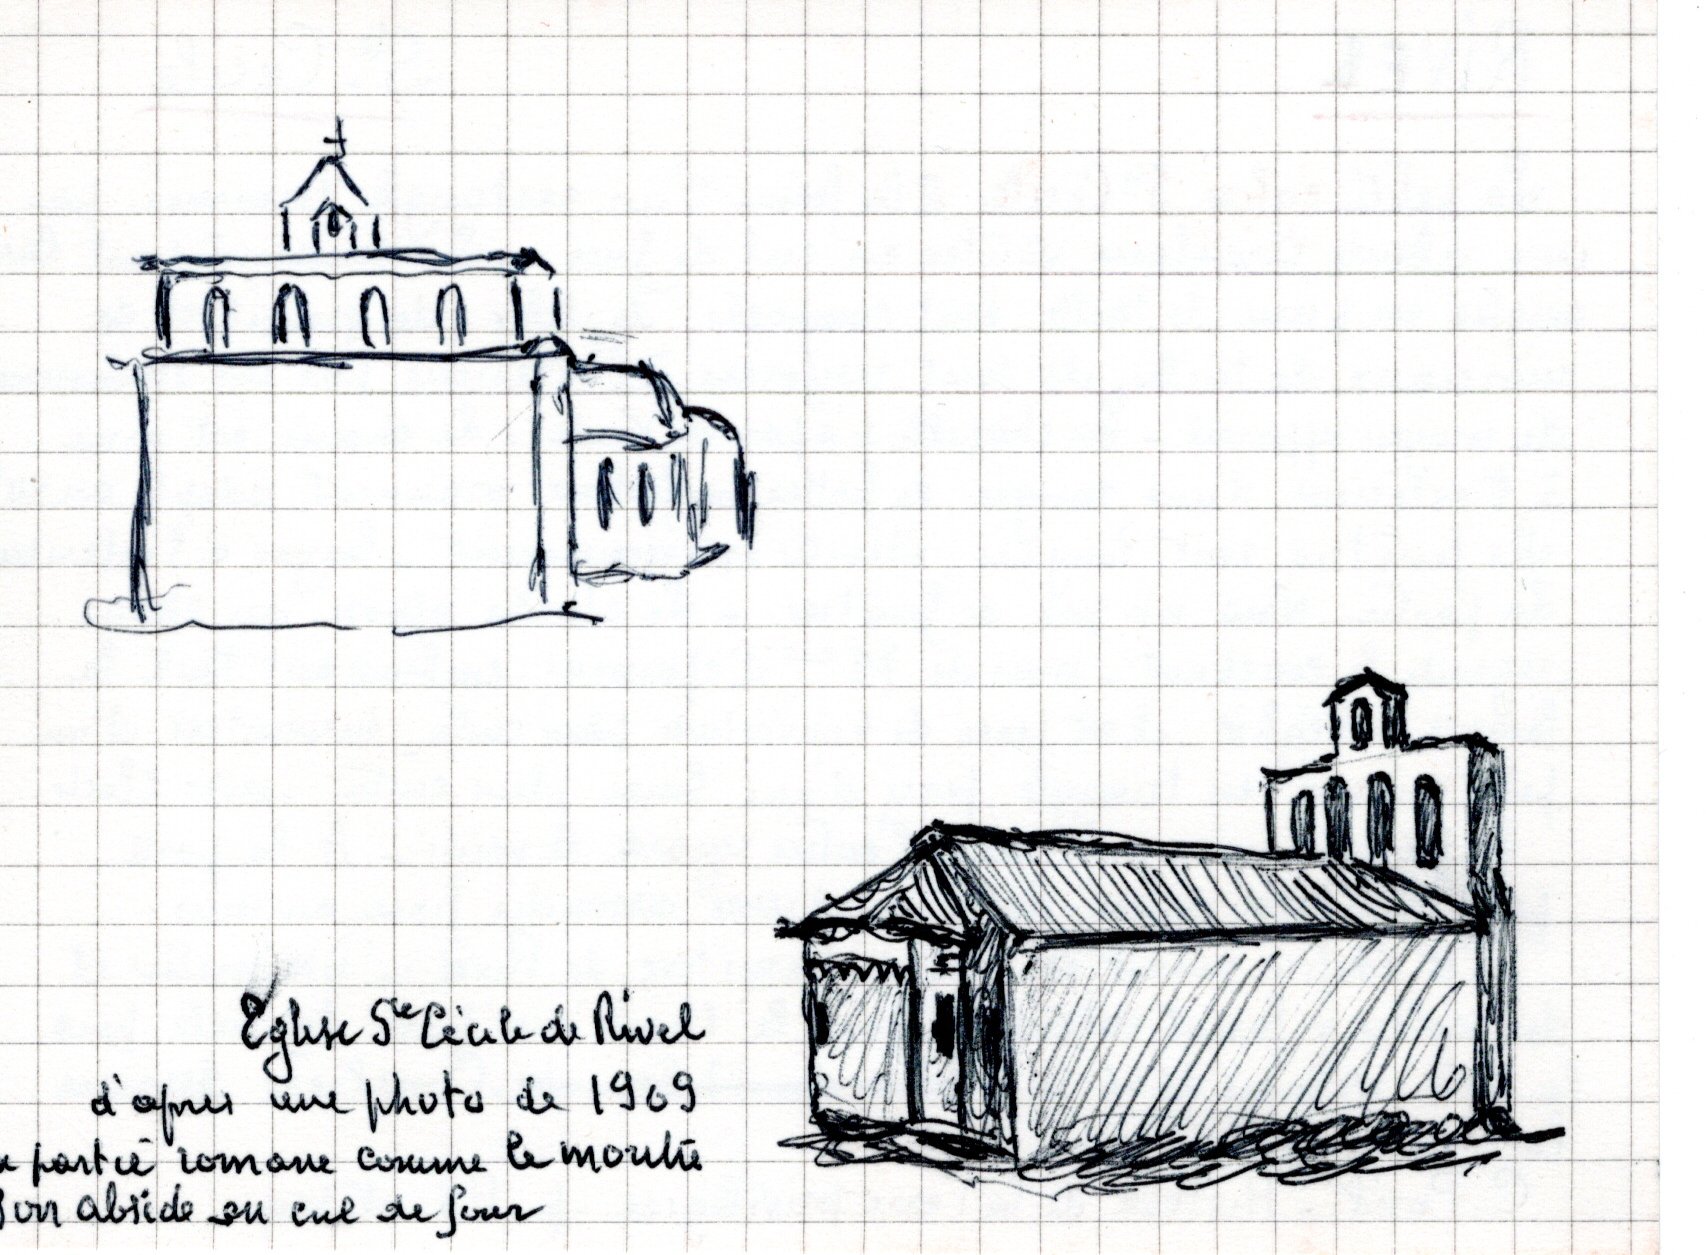 Eglise Ste Cécile de Rivel
d'après une photo de 1909
partie romane comme le montre
son abside en cul de four